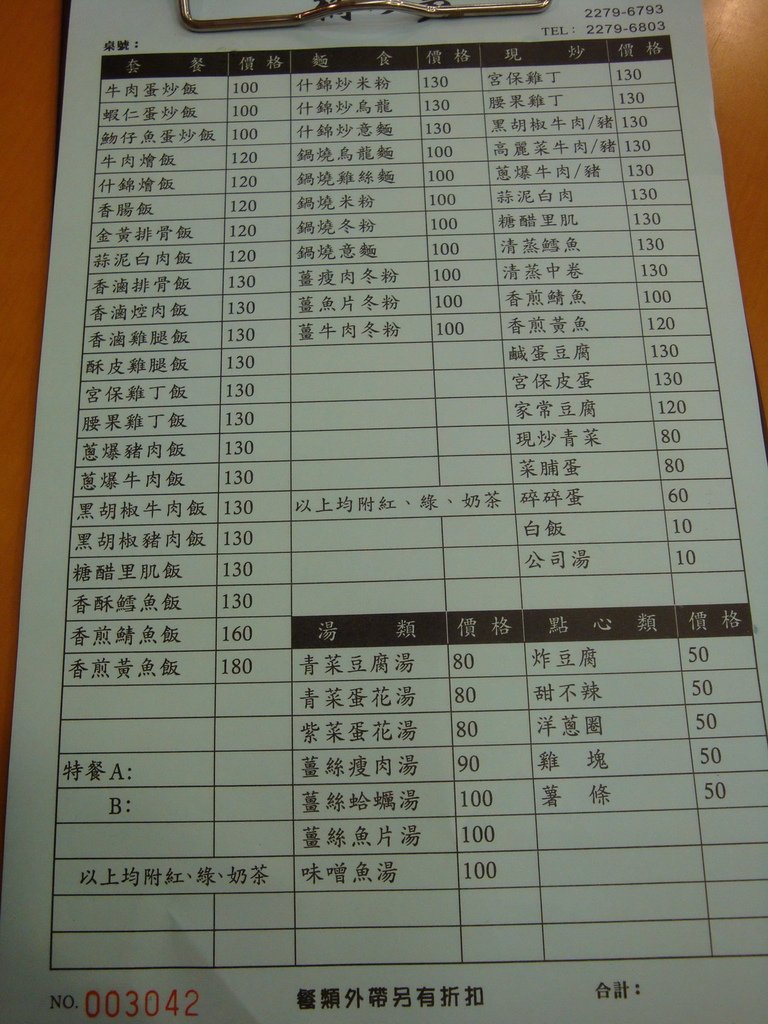 2279-6793
TEL: 2279-6803
桌號：
套 餐 價格 麵 食 價格 現 炒 價格
牛肉蛋炒飯 100 什錦炒米粉 130 宮保雞丁 130
蝦仁蛋炒飯 100 什錦炒烏龍 130 腰果雞丁 130
魩仔魚蛋炒飯 100 什錦炒意麵 130 黑胡椒牛肉/豬 130
牛肉燴飯 120 鍋燒烏龍麵 100 高麗菜牛肉/豬 130
什錦燴飯 120 鍋燒雞絲麵 100 蔥爆牛肉/豬 130
香腸飯 120 鍋燒米粉 100 蒜泥白肉 130
金黃排骨飯 120 鍋燒冬粉 100 糖醋里肌 130
蒜泥白肉飯 120 鍋燒意麵 100 清蒸鱈魚 130
香滷排骨飯 130 薑瘦肉冬粉 100 清蒸中卷 130
香滷焢肉飯 130 薑魚片冬粉 100 香煎鯖魚 100
香滷雞腿飯 130 薑牛肉冬粉 100 香煎黃魚 120
酥皮雞腿飯 130 鹹蛋豆腐 130
宮保雞丁飯 130 宮保皮蛋 130
腰果雞丁飯 130 家常豆腐 120
蔥爆豬肉飯 130 現炒青菜 80
蔥爆牛肉飯 130 菜脯蛋 80
黑胡椒牛肉飯 130 以上均附紅、綠、奶茶 碎碎蛋 60
黑胡椒豬肉飯 130 白飯 10
糖醋里肌飯 130 公司湯 10
香酥鱈魚飯 130
香煎鯖魚飯 160 湯 類 價格 點心類 價格
香煎黃魚飯 180 青菜豆腐湯 80 炸豆腐 50
青菜蛋花湯 80 甜不辣 50
紫菜蛋花湯 80 洋蔥圈 50
特餐A: 薑絲瘦肉湯 90 雞 塊 50
B: 薑絲蛤蠣湯 100 薯 條 50
薑絲魚片湯 100
以上均附紅、綠、奶茶 味噌魚湯 100
NO. 003042 餐類外帶另有折扣 合計：